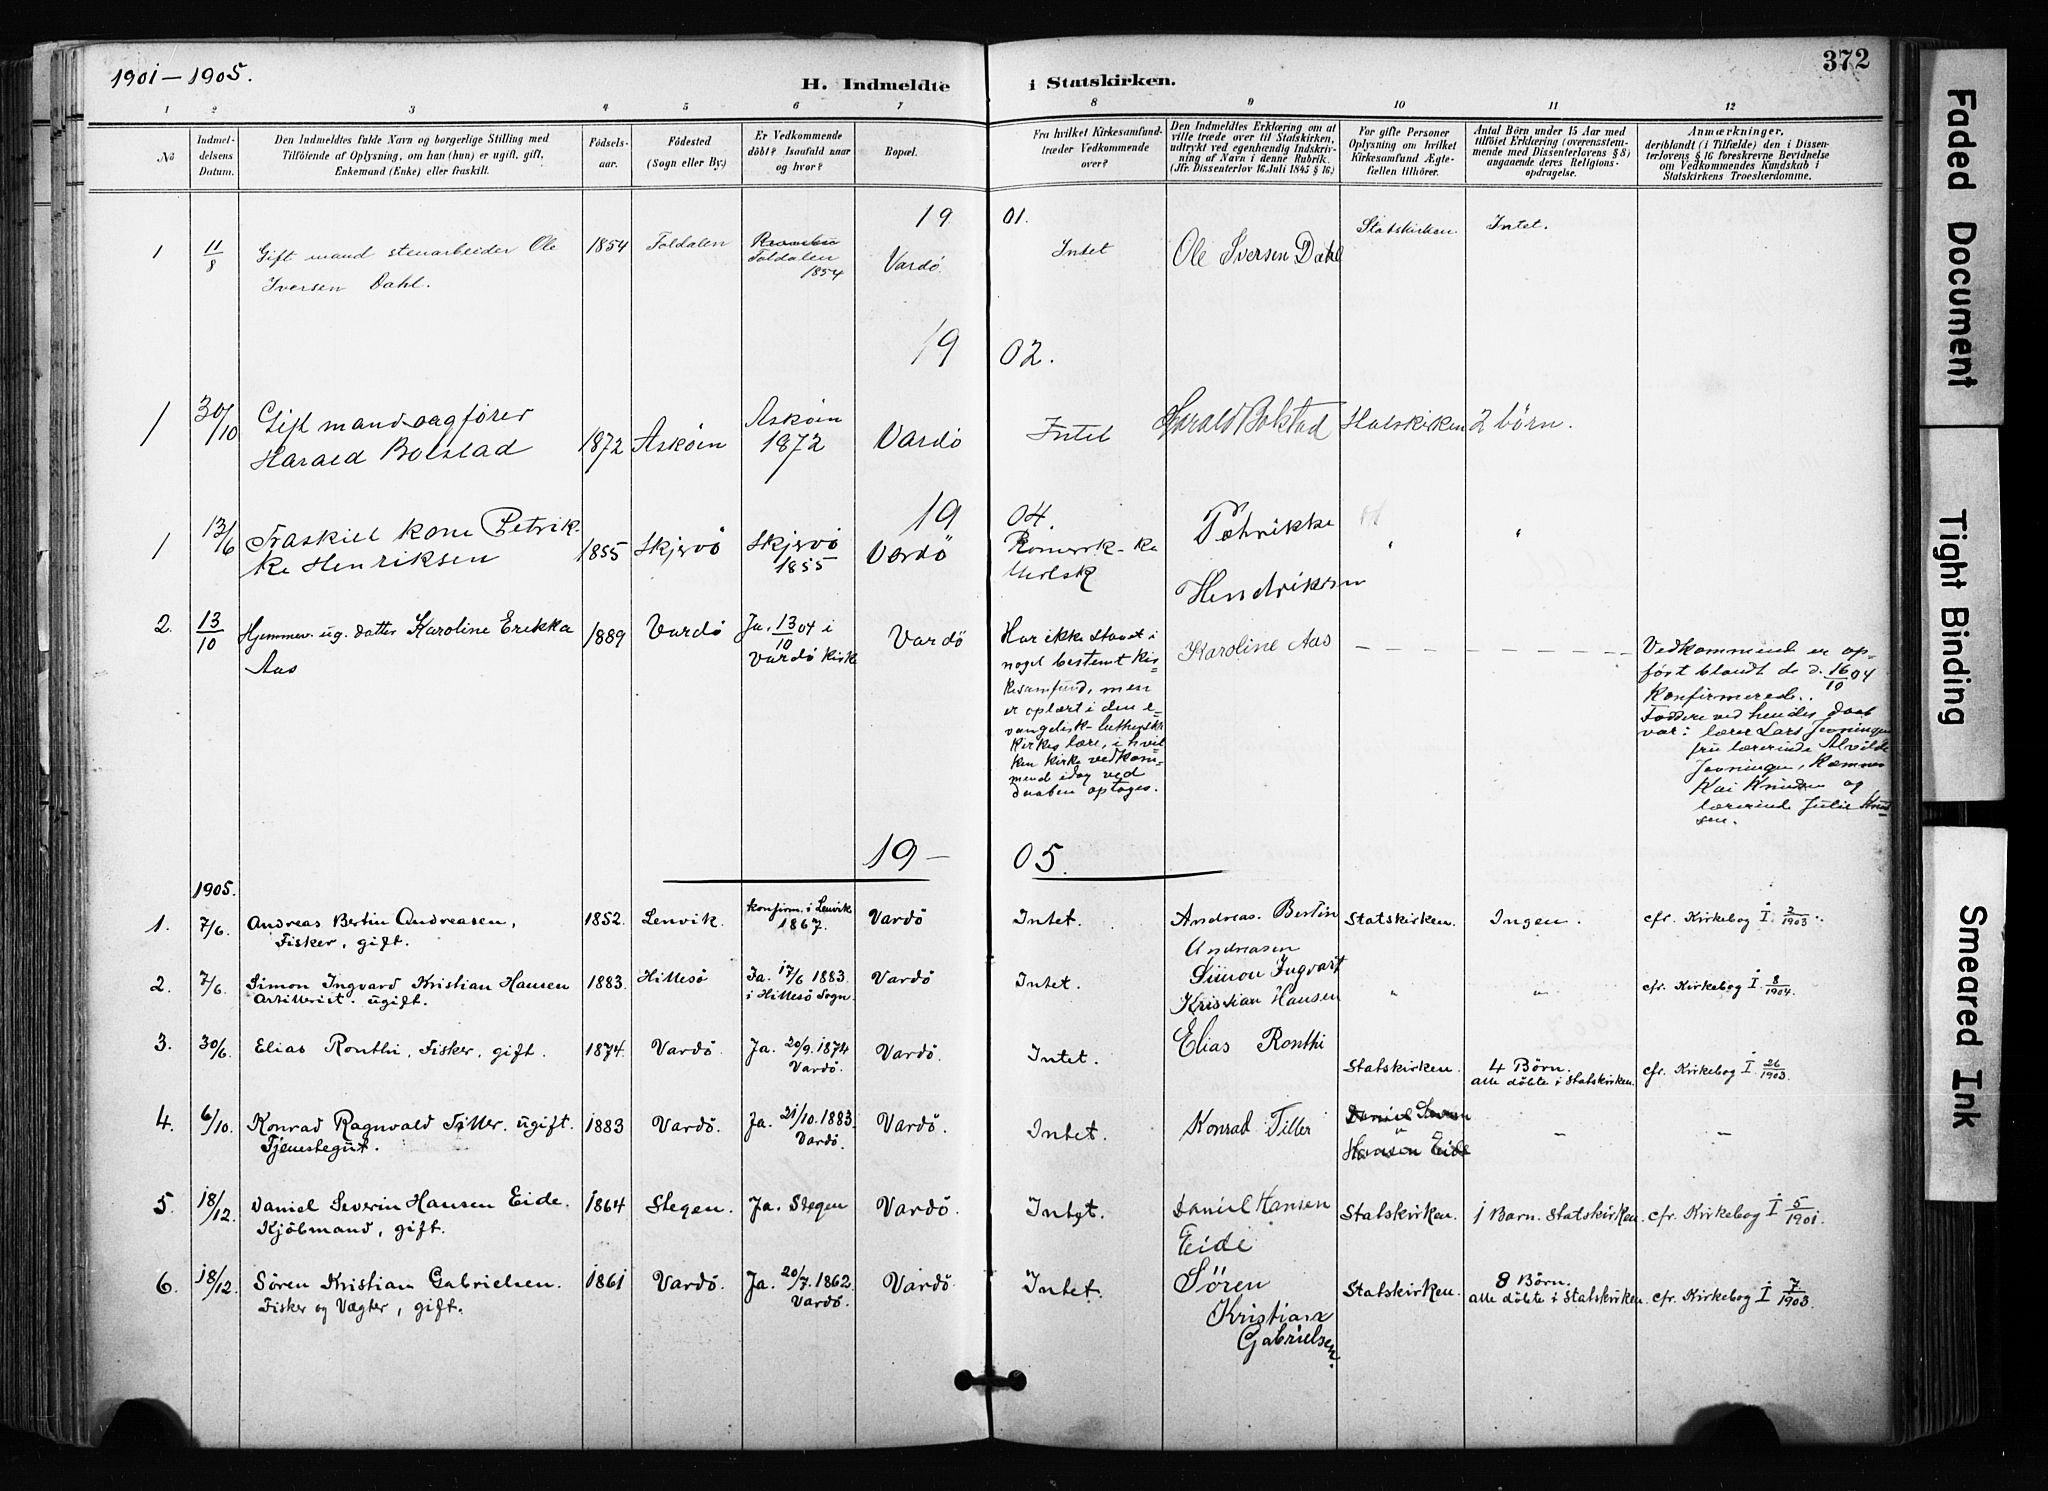 1901 — 1905.
372
H. Indmeldte i Statskirken.
1 2 3 4 5 6 7 8 9 10 11 12
No
Indmel-
delsens
Datum.
Den Indmeldtes fulde Navn og borgerlige Stilling med
Tilföiende af Oplysning, om han (hun) er ugift, gift,
Enkemand (Enke) eller fraskilt.
Födsels-
aar.
Födested
(Sogn eller By.)
Er Vedkommende
döbt? Isaafald naar
og hvor?
Bopæl.
Fra hvilket Kirkesamfund-
træder Vedkommende
over?
Den Indmeldtes Erklæring om at
ville træde over til Statskirken,
udtrykt ved egenhændig Indskriv-
ning af Navn i denne Rubrik.
(Jfr. Dissenterlov 16 Juli 1845 § 16.)
For gifte Personer
Oplysning om hvilket
Kirkesamfund Ægte-
fællen tilhörer.
Antal Börn under 15 Aar med
tilföiet Erklæring (overensstem-
mende med Dissenterlovens § 8)
angaaende deres Religions-
opdragelse.
Anmærkninger,
deriblandt (i Tilfælde) den i Dissen-
terlovens § 16 foreskrevne Bevidnelse
om Vedkommendes Kundskab i
Statskirkens Troeslærdomme.
19 01.
1 11/8 Gift mand stenarbeider Ole
Iversen Dahl.
1854 Foldalen
Foldalen
1854
Vardö Intet Ole Iversen Dahl Statskirken Intet.
19 02.
1 30/10 Gift mand sagfører
Harald Bolstad
1872 Askøen
Askøen
1872
Vardö Intet Harald Bolstad Statskirken 2 børn.
19 04.
1 13/6 Fraskilt kone Petrik-
ke Henriksen
1855 Skjervö
Skjervö
1855
Vardö
Romersk-ka
tholsk
Petrikke
Hendriksen
" "
2. 13/10 Hjemmev. ug. datter Karoline Erikka
Aas
1889 Vardö
Ja. 13/10 04 i
Vardö kirke
Vardö
Har ikke staaet i
noget bestemt kir-
kesamfund, men
er oplært i den e-
vangelisk-lutherske
kirkes lære, i hvil-
ken kirke vedkom-
mend idag ved
daaben optages.
Karoline Aas
Vedkommende er op-
ført blandt de d. 16/10 04
konfirmerede.
Faddere ved hendes daab
var: lærer Lars Jevningen
fru lærerinde Alvilde
Jevningen, Kæmner
Kai Knudsen og
lærerinde Julie Knud-
sen.
19 — 05.
1905.
1. 7/6. Andreas Bertin Andreasen,
Fisker, gift.
1852. Lenvik.
konfirm. i Lenvik
1867.
Vardö Intet.
Andreas Bertin
Andreasen
Statskirken. Ingen. cfr. Kirkebog I 2/1903.
2. 7/6. Simon Ingvard Kristian Hansen
Artillerist. ugift.
1883. Hillesö
Ja. 17/6 1883.
i Hillesö Sogn.
Vardö Intet.
Simon Ingvart
Kristian Hansen
" " cfr. Kirkebog I 8/1904.
3. 30/6. Elias Ronthi, Fisker, gift.
1874. Vardö.
Ja. 20/9. 1874
Vardö.
Vardö. Intet. Elias Ronthi
Statskirken.
4 Börn.
alle döbte i Statskirken.
cfr. Kirkebog I 26/1903.
4. 6/10. Konrad Ragnvald Tiller. ugift.
Tjenestegut.
1883 Vardö.
Ja. 21/10. 1883.
Vardö.
Vardö. Intet. Konrad Tiller
Daniel Severin
Hansen Eide
– –
5. 18/12. Daniel Severin Hansen Eide.
Kjöbmand, gift.
1864 Stegen. Ja. Stegen Vardö. Intet.
Daniel Hansen
Eide
Statskirken. 1 Barn. Statskirken. cfr. Kirkebog I 5/1901.
6. 18/12. Sören Kristian Gabrielsen.
Fisker og Vægter, gift.
1861 Vardö.
Ja. 20/7. 1862
Vardö.
Vardö. Intet.
Sören
Kristian
Gabrielsen.
Statskirken.
8 Börn.
alle döbte i Statskirken.
cfr. Kirkebog I 7/1903.
Faded Document
Tight Binding
Smeared Ink